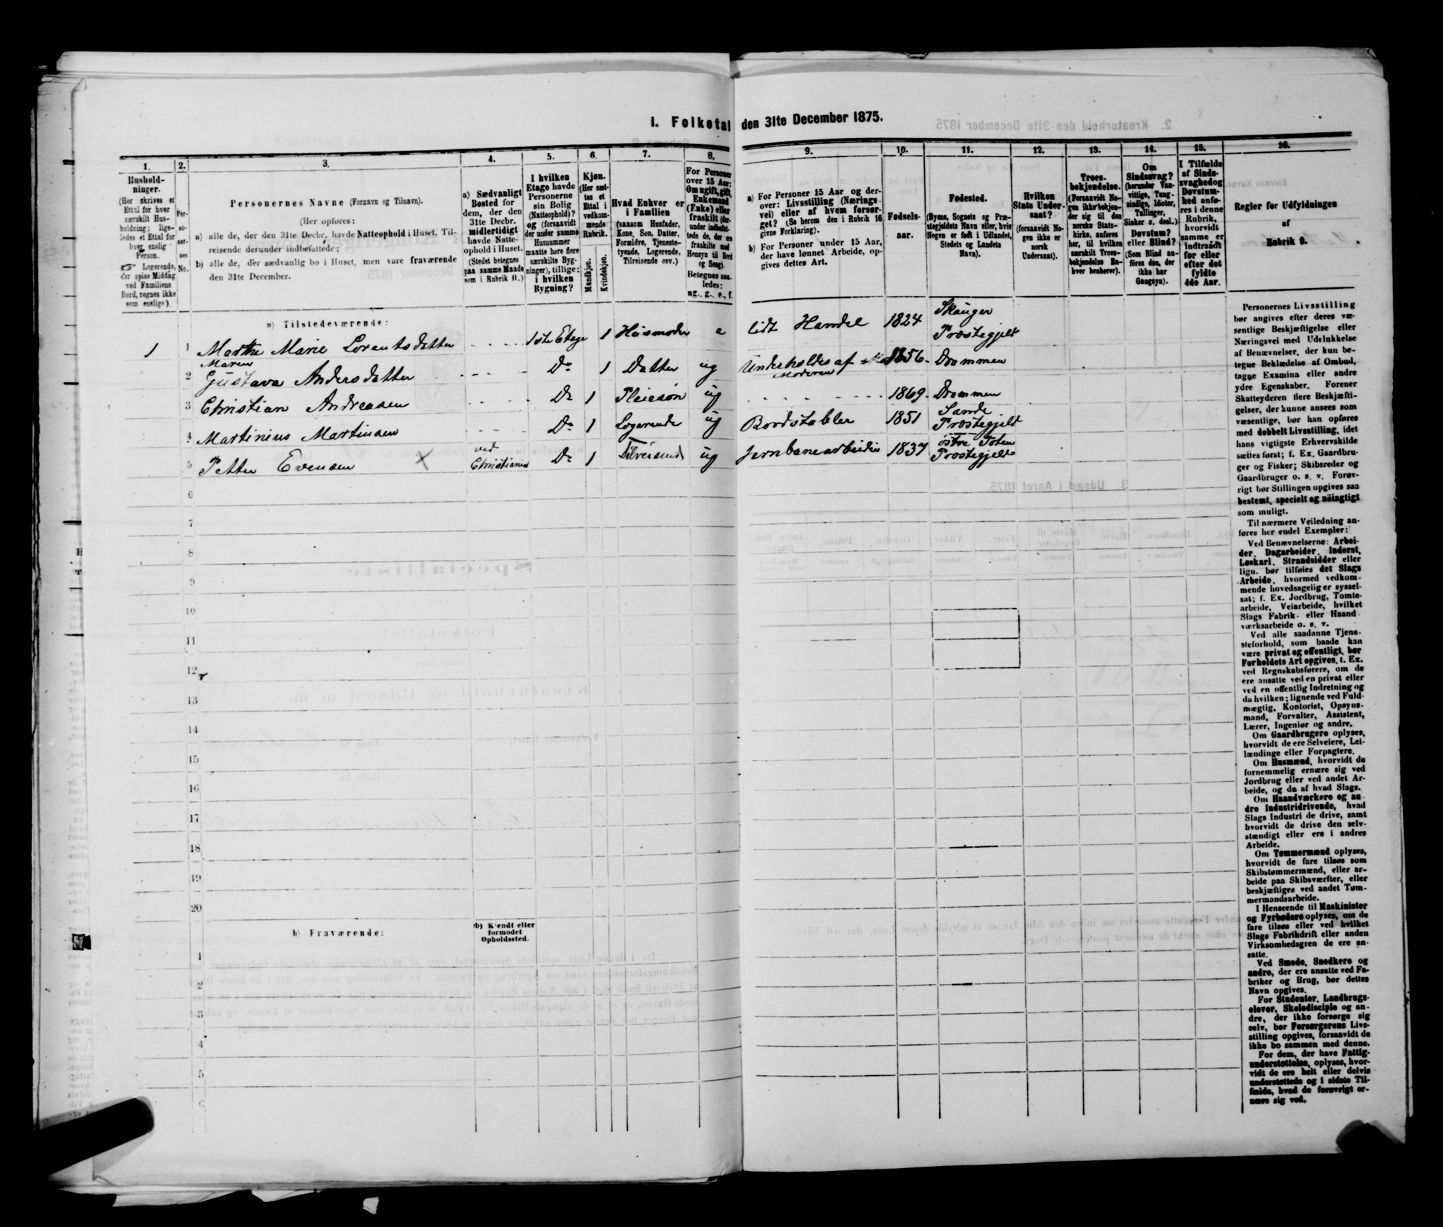 I. Folketal den 31te December 1875.
1. 2. 3. 4. 5. 6. 7. 8. 9. 10. 11. 12. 13. 14. 15. 16.
Hushold-
ninger.
(Her skrives et
Ettal for hver
særskilt Hus-
holdning; lige-
ledes et Ettal for
hver enslig
Person.
☞ Logerende,
der spise Middag
ved Familiens
Bord, regnes ikke
som enslige).
Per-
so-
ner-
nes
No.
Personernes Navne (Fornavn og Tilnavn).
(Her opføres:
a) alle de, der den 31te Decbr. havde Natteophold i Huset, Til-
reisende derunder indbefattede;
b) alle de, der sædvanlig bo i Huset, men vare fraværende
den 31te December.
a) Sædvanligt
Bosted for
dem, der den
31te Decbr.
midlertidigt
havde Natte-
ophold i Huset.
(Stedet betegnes
paa samme Maade
som i Rubrik 11.)
I hvilken
Etage havde
Personerne
sin Bolig
(Natteophold?
og (forsaavidt
der under samme
Husnummer
maatte høre flere
særskilte Byg-
ninger), tillige:
i hvilken
Bygning?
Kjøn.
(Her sæt-
tes et
Ettal i
vedkom-
mende
Rubrik.
Mandkjøn.
Kvindekjøn.
Hvad Enhver er
i Familien
(saasom Husfader,
Kone, Søn, Datter,
Forældre, Tjeneste-
tyende, Logerende,
Tilreisende osv.)
For Personer
over 15 Aar:
Om ugift, gift,
Enkemand
(Enke) eller
fraskilt (der-
under indbefat-
tede de, der ere
fraskilte med
Hensyn til Bord
og Seng).
Betegnes saa-
ledes:
ug., g., e., f.
a) For Personer 15 Aar og der-
over: Livsstilling (Nærings-
vei) eller af hvem forsør-
get? (Se herom den i Rubrik 16
givne Forklaring).
b) For Personer under 15 Aar,
der have lønnet Arbeide, op-
gives dettes Art.
Fødsels-
aar.
Fødested.
(Byens, Sognets og Præ-
stegjeldets Navn eller, hvis
Nogen er født i Udlandet,
Stedets og Landets
Navn).
Hvilken
Stats Under-
saat?
(forsaavidt No-
gen ikke er
norsk
Undersaat).
Troes-
bekjendelse.
(Forsaavidt No-
gen ikke bekjen-
der sig til den
norske Stats-
kirke, anføres
her, til hvilken
særskilt Troes-
bekjendelse En-
hver henhører).
Om
Sindssvag?
(herunder Van-
vittige, Tung-
sindige, Idioter,
Tullinger,
Sinker o. desl.)
Døvstum?
eller Blind?
(Som Blind an-
føres den, der
ikke har
Gangsyn).
I Tilfælde
af Sinds-
svaghed og
Døvstum-
hed anfø-
res i denne
Rubrik,
hvorvidt
samme er
indtraadt
før eller
efter det
fyldte
4de Aar.
Regler for Udfyldningen
af
Rubrik 9.
a) Tilstedeværende:
1 1 Marthe Marie Lorentsdatter - - - - 1ste Etage 1 Husmoder e lidt Handel 1824 Skauger Præstegjeld
2 Maren Gustava Andersdatter - - - - Do 1 Datter ug Underholdes af Moderen 1856 - Drammen
3 Christian Andreasen - - - - Do 1 Pleiesøn ug - - - - 1869 - Drammen
4 Martinius Martinsen Do 1 Logerende ug Bordstabler 1851 Sande Præstegjeld
5 Petter Evensen X ved Christiania Do 1 Tilreisende ug Jernbanearbeider 1837 Østre Toten Præstegjeld
6
7
8
9
10
11
12
13
14
15
16
17
18
19
20
b) Fraværende: b) Kjendt eller
formodet
Opholdssted.
1
2
3
4
5
6
Personernes Livsstilling
bør angives efter deres væ-
sentlige Beskjæftigelse eller
Næringsvei med Udelukkelse
af Benævnelser, der kun be-
tegne Beklædelse af Ombud,
tagne Examina eller andre
ydre Egenskaber. Forener
Skatteyderen flere Beskjæfti-
gelser, der kunne ansees som
væsentlige, bør han opføres
med dobbelt Livsstilling, idet
hans vigtigste Erhvervskilde
sættes først; f. Ex. Gaardbru-
ger og Fisker; Skibsreder og
Gaardbruger o. s. v. Forøv-
rigt bør Stillingen opgives saa
bestemt, specielt og nøiagtigt
som muligt.
Til nærmere Veiledning an-
føres her endel Exempler:
Ved Benævnelserne: Arbei-
der, Dagarbeider, Inderst,
Løskarl, Strandsidder eller
lign. bør tilføies det Slags
Arbeide, hvormed vedkom-
mende hovedsagelig er syssel-
sat; f. Ex. Jordbrug, Tomte-
arbeide, Veiarbeide, hvilket
Slags Fabrik- eller Haand-
værksarbeide o. s. v.
Ved alle saadanne Tjene-
steforhold, som baade kan
være privat og offentligt, bør
Forholdets Art opgives, t. Ex.
ved Regnskabsførere, om de
ere ansatte ved en privat eller
ved en offentlig Indretning og
da hvilken; lignende ved Fuld-
mægtig, Kontorist, Opsyns-
mand, Forvalter, Assistent,
Lærer, Ingeniør og andre.
Om Gaardbrugere oplyses,
hvorvidt de ere Selveiere, Lei-
lændinge eller Forpagtere.
Om Husmænd, hvorvidt de
fornemmelig ernære sig ved
Jordbrug eller ved andet Ar-
beide, og da af hvad Slags.
Om Haandværkere og an-
dre Industridrivende, hvad
Slags Industri de drive, samt
hvorvidt de drive den selv-
stændigt eller ere i andres
Arbeide.
Om Tømmermænd oplyses,
hvorvidt de fare tilsøs som
Skibstømmermænd, eller ar-
beide paa Skibsværfter, eller
beskjæftiges ved andet Tøm-
mermandsarbeide.
I Henseende til Maskinister
og Fyrbødere oplyses, om de
fare tilsøs eller ved hvilket
Slags Fabrikdrift eller anden
Virksomhedsgren de ere an-
satte.
Ved Smede, Snedkere og
andre, der ere ansatte ved Fa-
briker og Brug, bør dettes
Navn opgives.
For Studenter, Landbrugs-
elever, Skoledisciple og an-
dre, der ikke forsørge sig
selv, bør Forsørgerens Livs-
stilling opgives, forsaavidt de
ikke bo sammen med denne.
For dem, der have Fattig-
understøttelse, oplyses, hvor-
vidt de ere helt eller delvis
understøttede og i sidste Til-
fælde, hvad de forøvrigt er-
nære sig ved.